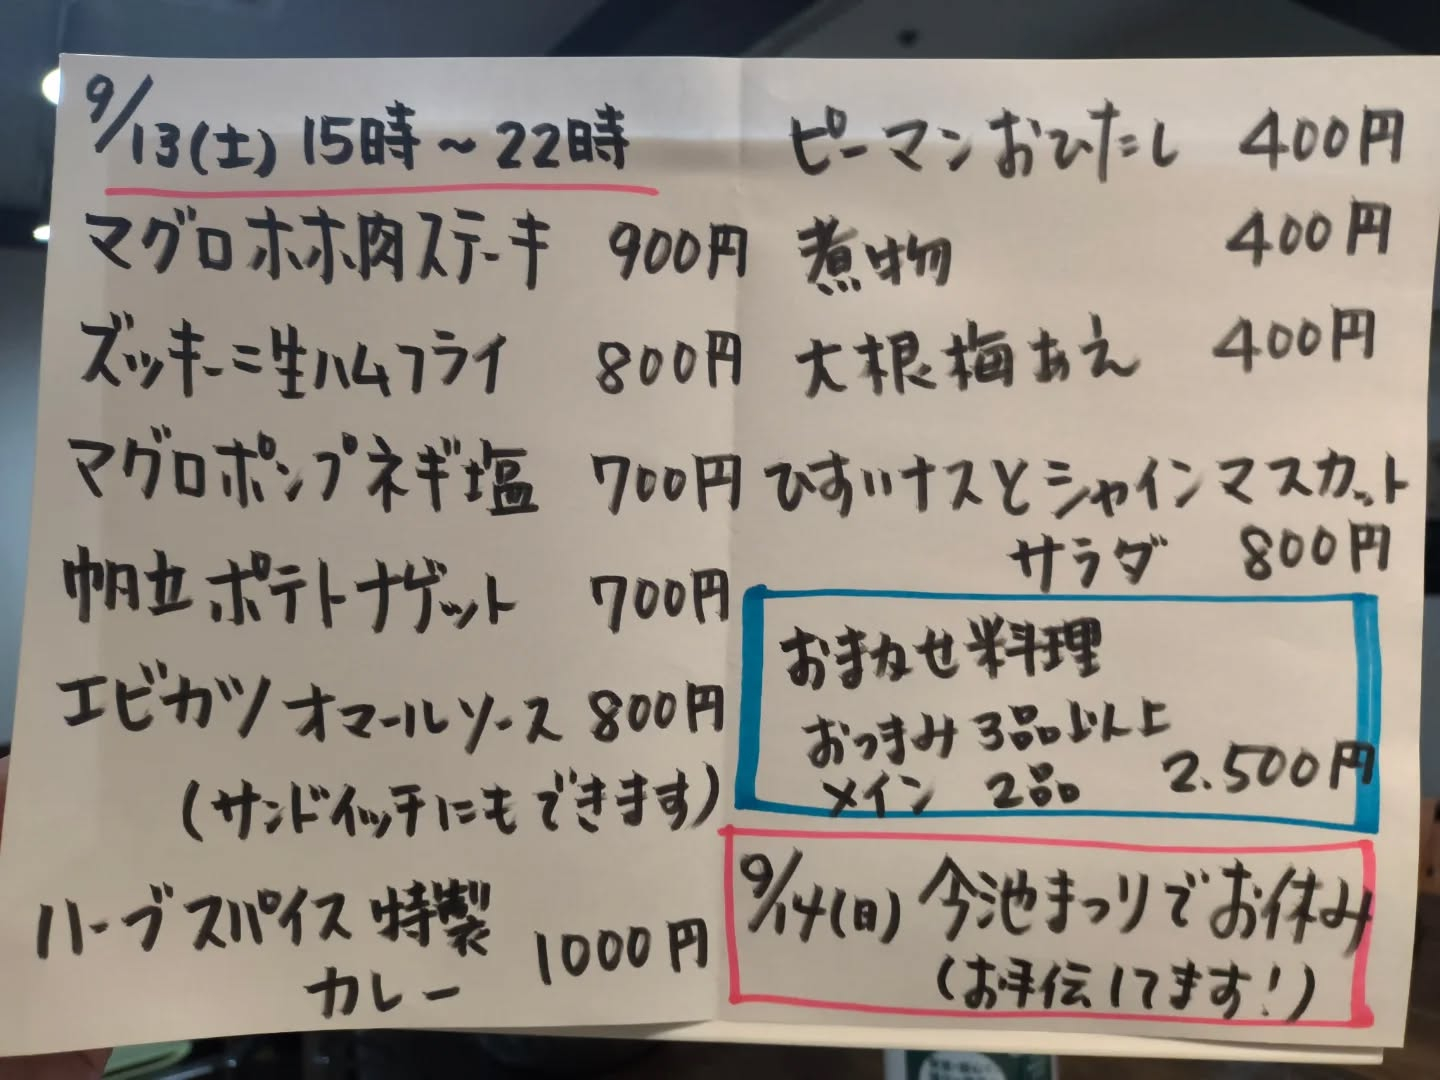 9/13(土) 15時～22時
マグロホホ肉ステーキ 900円
ズッキーニ生ハムフライ 800円
マグロポンプネギ塩 700円
帆立ポテトナゲット 700円
エビカツ オマールソース 800円
(サンドイッチにもできます)
ハーブスパイス特製
カレー 1000円
ピーマンおひたし 400円
煮物 400円
大根梅あえ 400円
ひすいナスとシャインマスカット
サラダ 800円
おまかせ料理
おつまみ3品以上
メイン 2品 2.500円
9/14(日) 今池まつりでお休み
(お手伝してます!)